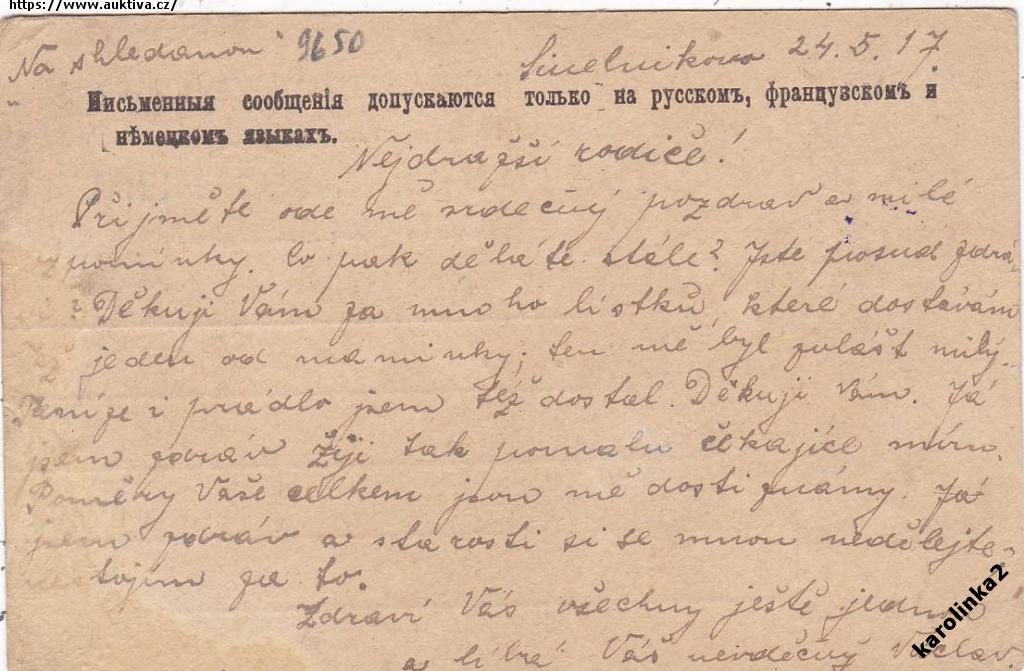 https://www.auktiva.cz/
"Na shledanou" 9650 Sinelnikovo 24.5.17.
Письменныя сообщенія допускаются только на русскомъ, французскомъ и
нѣмецкомъ языкахъ.
Nejdražší rodiče!
Přijměte ode mě srdečný pozdrav a milé
vzpomínky. Co pak děláte stále? Jste posud zdrá-
vi? Děkuji Vám za mnoho lístků, které dostávám
jeden od maminky; ten mě byl zvlášt milý.
Peníze i prádlo jsem též dostal. Děkuji Vám. Já
jsem zdráv žiji tak pomalu čekajíce míru.
Poměry Vaše celkem jsou mě dosti známy. Já
jsem zdráv a starosti si se mnou nedělejte.
nestojím za to.
Zdraví Vás všechny ještě jednou
a líbá Váš nevděčný Václav
karolinka2